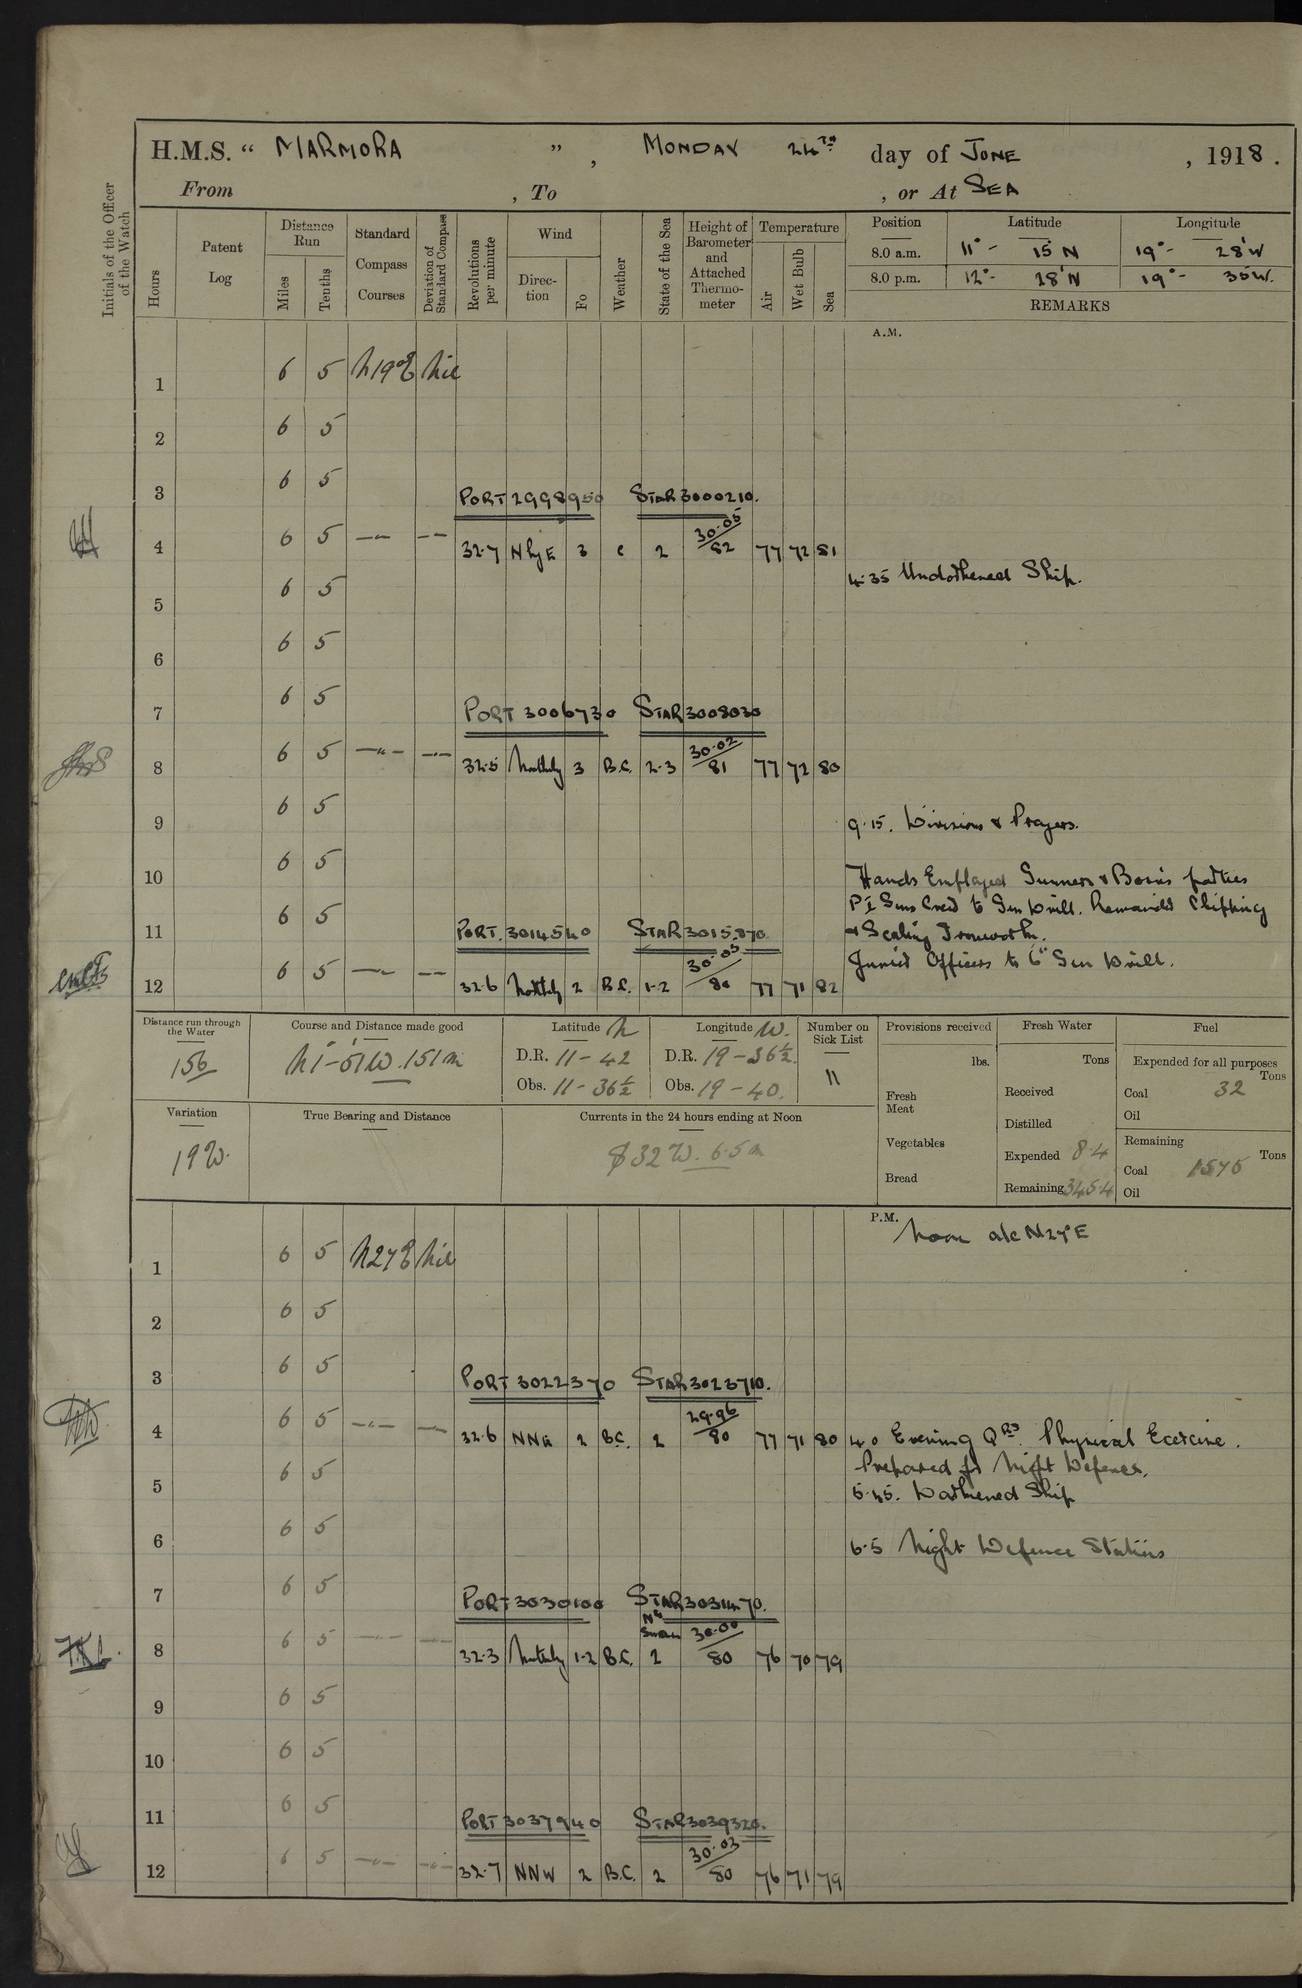 H.M.S. “ MARMORA ” , MONDAY 24TH day of JUNE , 1918 .
From , To , or At SEA
Initials of the Officer of the Watch
Hours
Patent Log
Distance Run
Miles
Tenths
Standard Compass Courses
Deviation of Standard Compass
Revolutions per minute
Wind
Direction
Fo
Weather
State of the Sea
Height of Barometer and Attached Thermometer
Temperature
Air
Wet Bulb
Sea
Position Latitude Longitude
8.0 a.m. 11° - 15' N 19° - 28' W
8.0 p.m. 12° - 28' N 19° - 35' W.
REMARKS
A.M.
1 6 5 N19°E Nil
2 6 5
3 6 5
PORT 2998950 STAR 3000210.
4 6 5 —〃— —〃— 32.7 N by E 3 C 2 30.05/82 77 72 81
4.35 Undarkened Ship.
5 6 5
6 6 5
7 6 5
PORT 3006730 STAR 3008030
8 6 5 —〃— —〃— 32.5 Northerly 3 B.C. 2.3 30.02/81 77 72 80
9 6 5 9.15. Divisions & Prayers.
10 6 5 Hands Employed Gunners & Bosn's parties
P I Guns Crew to Gun Drill. Remainder Chipping
11 6 5 & Scaling Ironwork.
PORT. 3014540 STAR 3015870
Junior Officers to 6" Gun Drill.
12 6 5 —〃— —〃— 32.6 Northerly 2 B.C. 1-2 30.05/80 77 71 82
Distance run through the Water
156
Course and Distance made good
N 1° - 01' W. 151 m
Latitude N
D.R. 11 - 42
Obs. 11 - 36½
Longitude W.
D.R. 19 - 36½
Obs. 19 - 40.
Number on Sick List
11
Provisions received
lbs.
Fresh Meat
Vegetables
Bread
Fresh Water
Tons
Received
Distilled
Expended 84
Remaining 3454
Fuel
Expended for all purposes
Tons
Coal 32
Oil
Remaining
Tons
Coal 1575
Oil
Variation
19 W.
True Bearing and Distance
Currents in the 24 hours ending at Noon
S 32 W. 6.5 m
P.M.
Noon a/c N27°E
1 6 5 N27E Nil
2 6 5
3 6 5
PORT 3022370 STAR 3023710.
4 6 5 —〃— —〃— 32.6 NNE 2 B.C. 2 29.96/80 77 71 80 4.0 Evening Qrs. Physical Exercise.
Prepared for Night Defence.
5 6 5 5.45. Darkened Ship
6 6 5 6.5 Night Defence Stations
7 6 5
PORT 3030100 STAR 3031470.
8 6 5 —〃— —〃— 32.3 Northerly 1-2 B.C. 2 30.00/80 76 70 79
9 6 5
10 6 5
11 6 5
PORT 3037940 STAR 3039320.
12 6 5 —〃— —〃— 32.7 NNW 2 B.C. 2 30.03/80 76 71 79